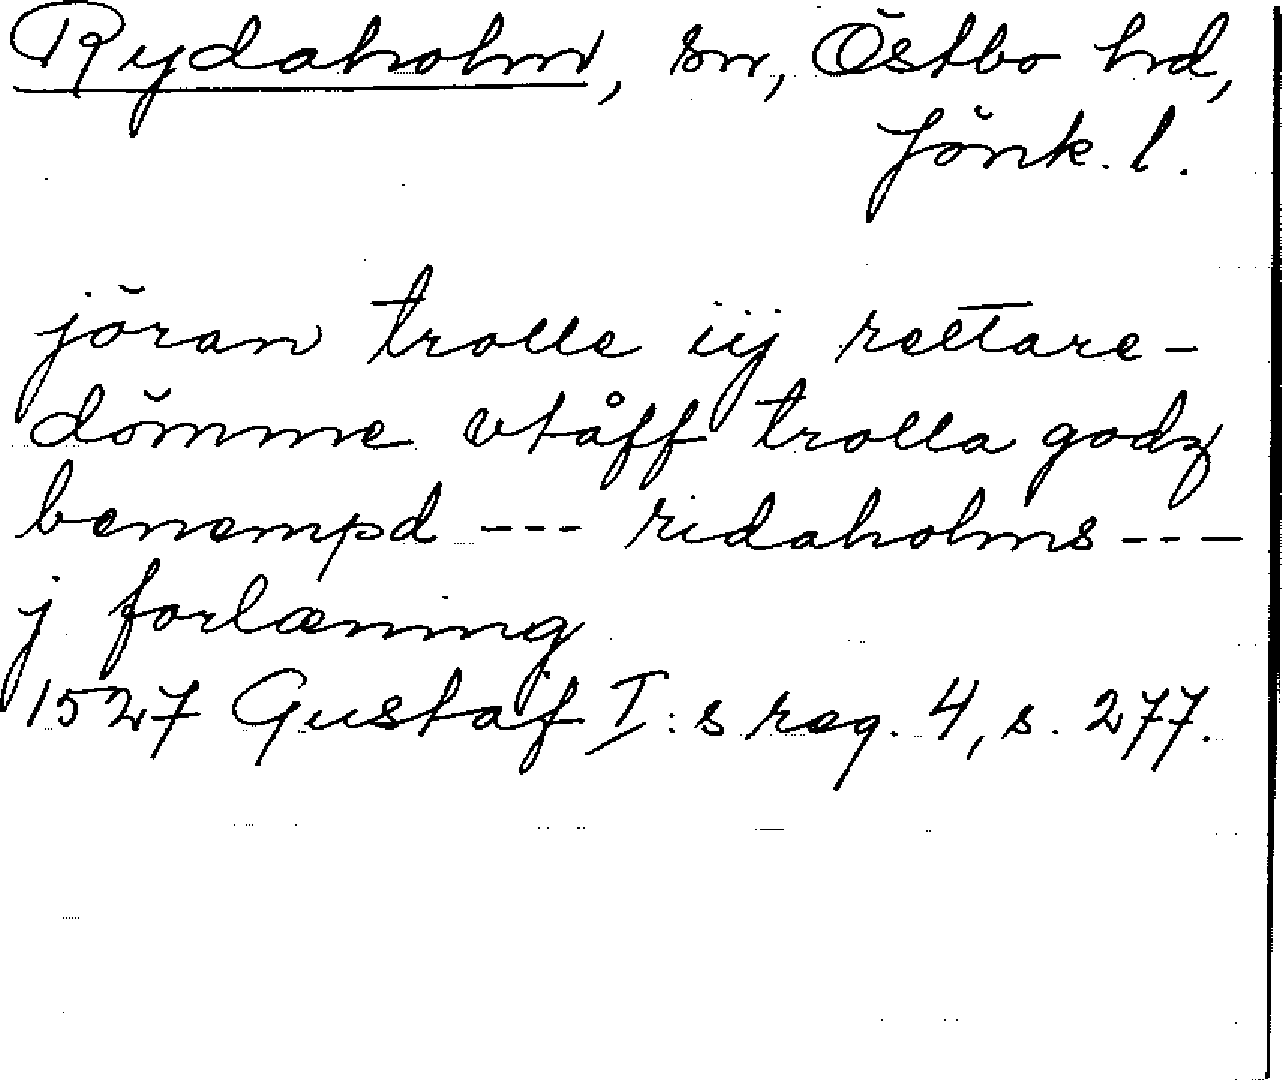 Rydaholm, sn, Östbo hd,
Jönk. l.
jöran trolle iij rettare-
dömme vtåff trolla godz
benempd --- ridaholms ---
j forlæning
1527 Gustaf I:s reg. 4, s. 277.